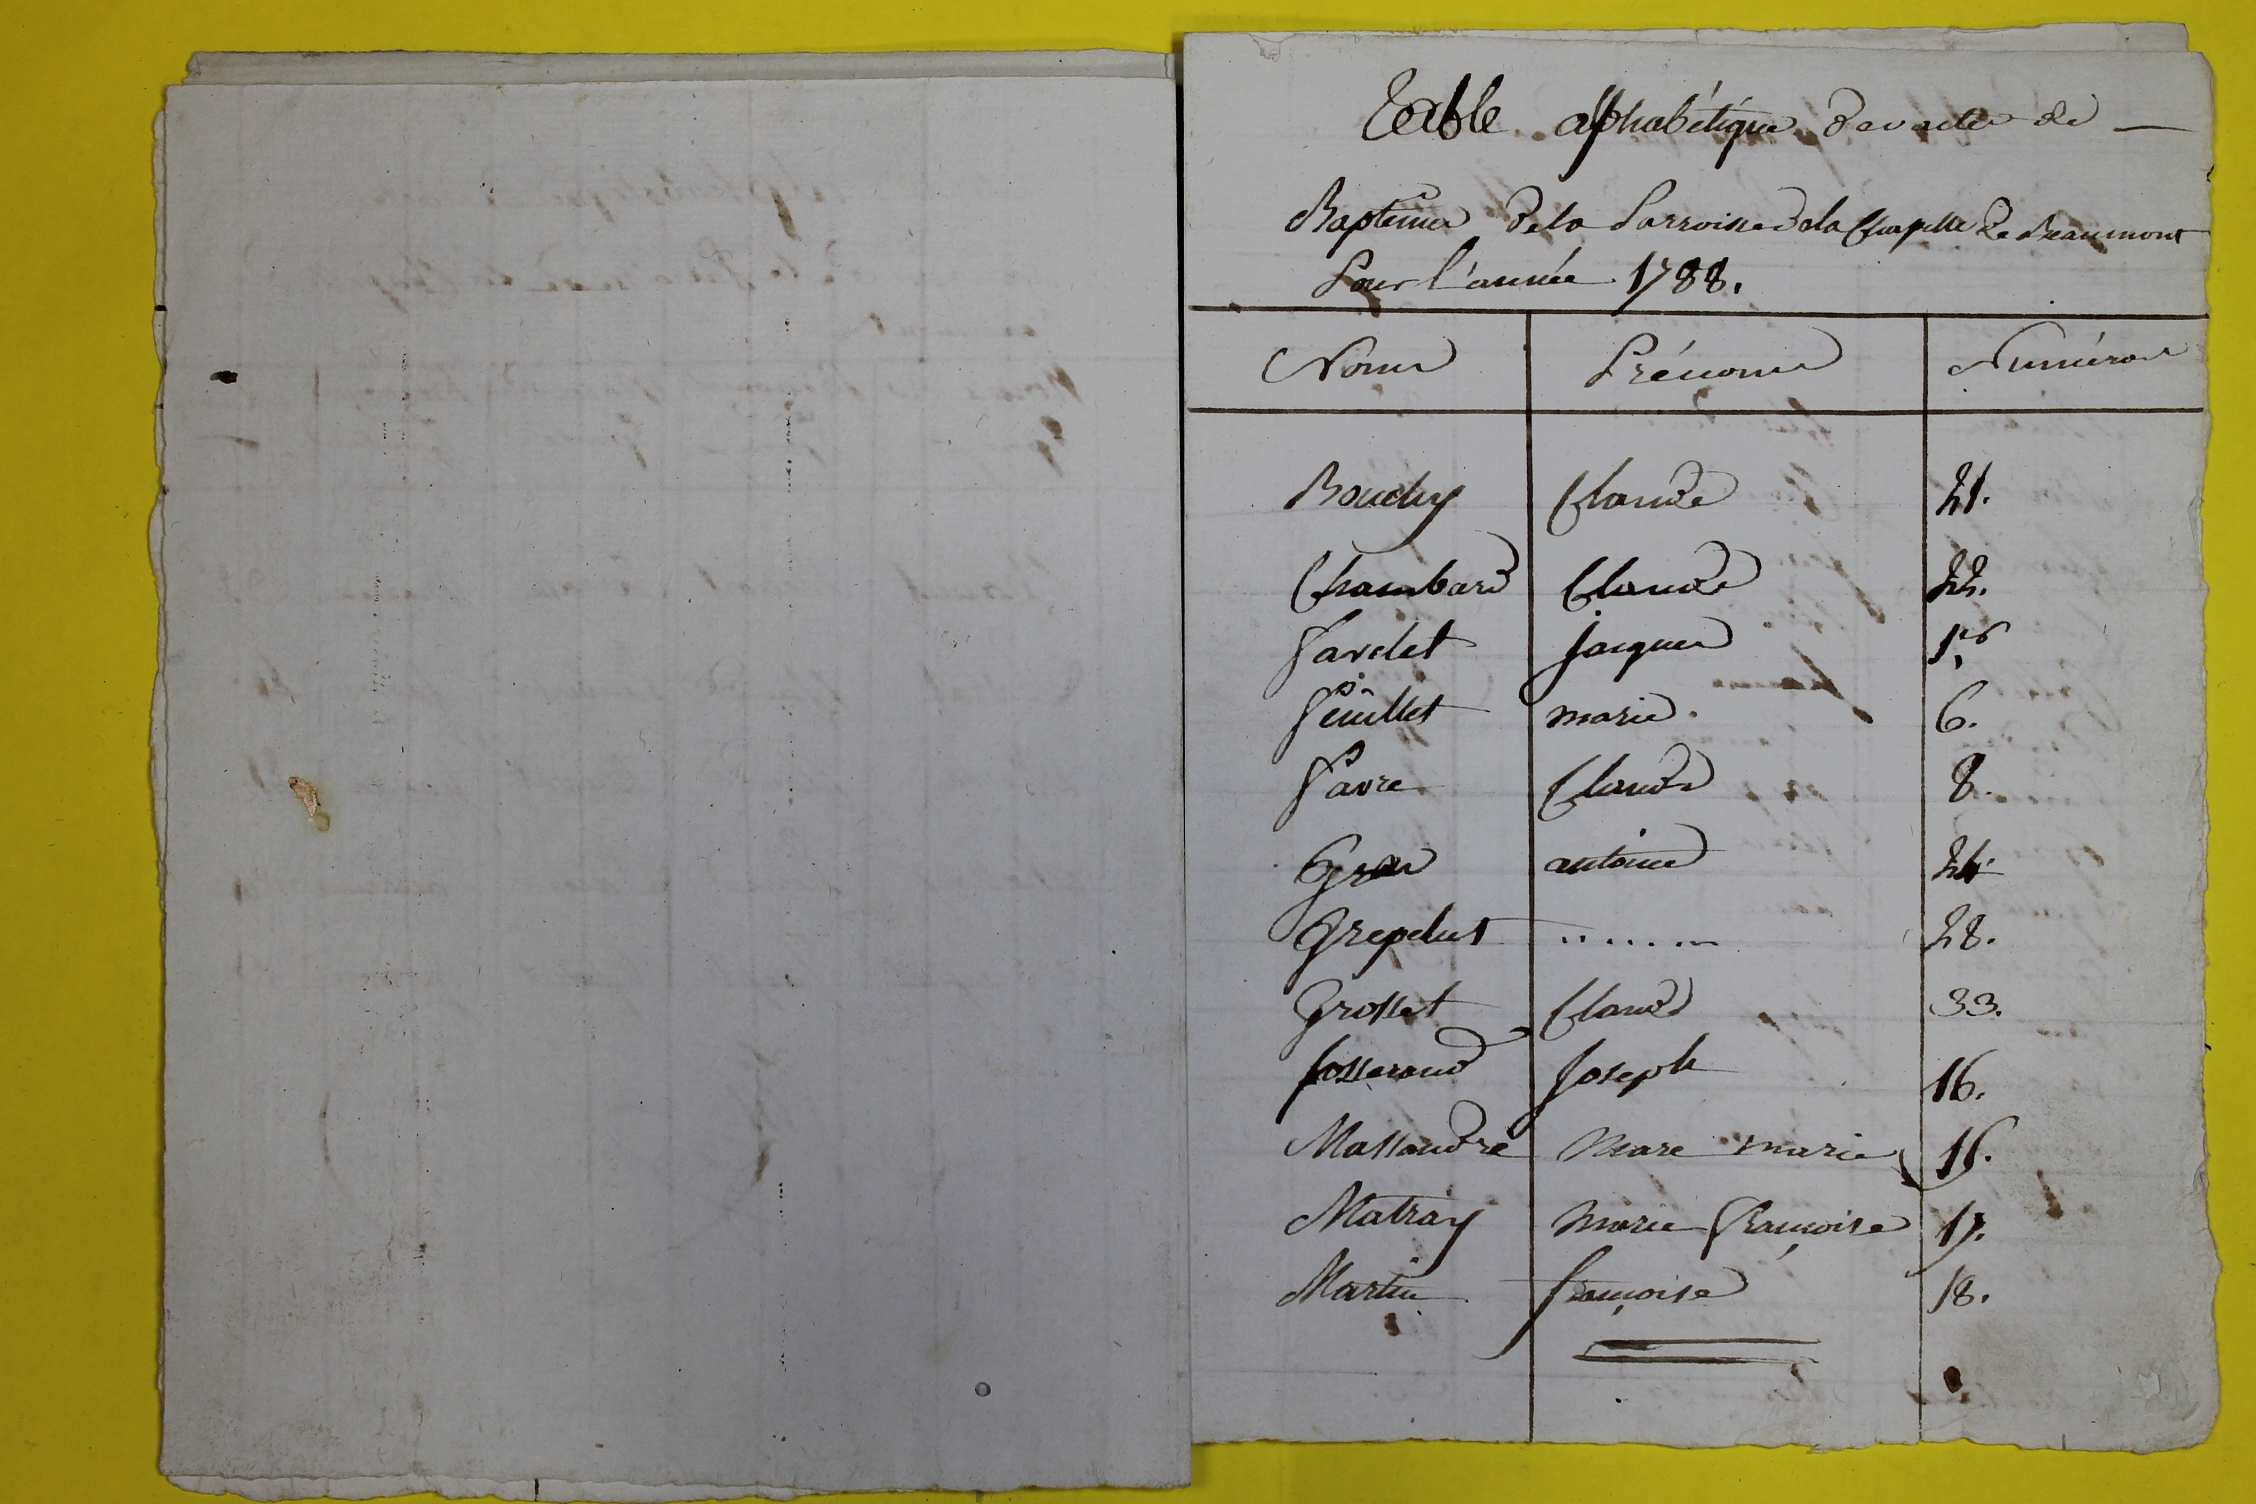 Table alphabétique des actes de —
Baptêmes de la Parroisse de la Chapelle de Beaumont
Pour l'année 1788.
Noms Prénoms Numéros
Bouchy Claude 21.
Chambard Claude 22.
Fardet Jacques
Feuillet marie. 6.
Favre Claude 8.
Gras antoine 24
Grepelut ........ 28.
Grosset Claude 33.
Josserand Joseph 16.
Massandre Marc marie
Matray Marie Françoise 17.
Martin françoise 18.